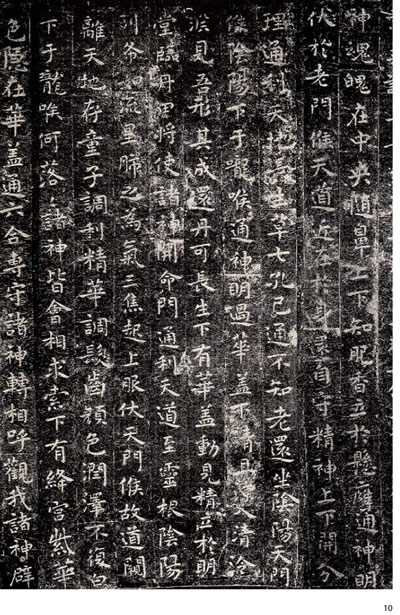 神魂魄在中央隨鼻上下知肥香立於懸雍通神明
伏於老門候天道近在於身還自守精神上下開分
理通利天地長生草七孔已通不知老還坐陰陽天門
候陰陽下于嚨喉通神明過華蓋下清且涼入清泠
淵見吾形其成還丹可長生下有華蓋動見精立於明
堂臨丹田將使諸神開命門通利天道至靈根陰陽
列布如流星肺之為氣三焦起上服伏天門候故道闚
離天地存童子調利精華調髮齒顏色潤澤不復白
下于嚨喉何落々諸神皆會相求索下有絳宮紫華
色隱在華蓋通六合專守諸神轉相呼觀我諸神辟
10